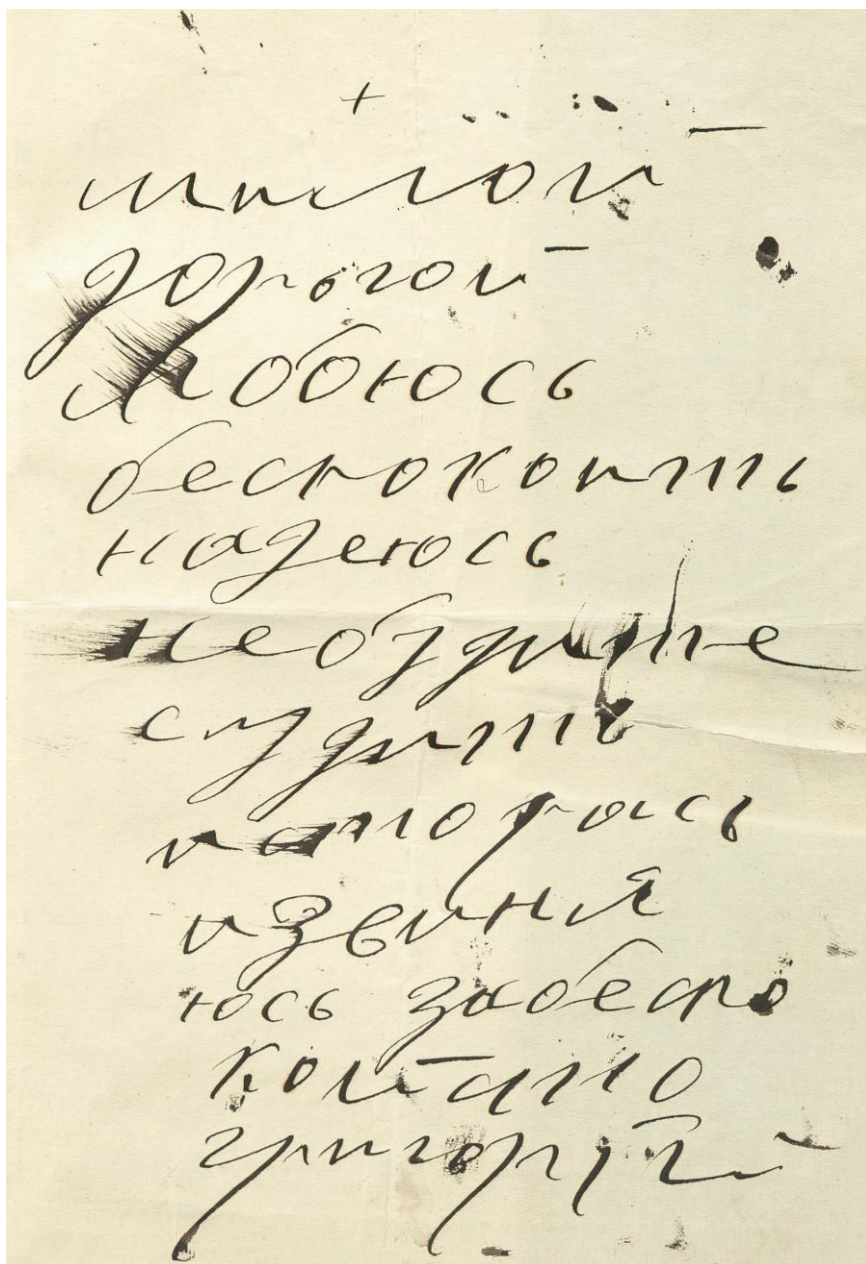 +
милой
дорьгой
я боюсь
беспокоить
надеюсь
небудите
судить
ищорась
извиня
юсь забеспо
койство
григорий